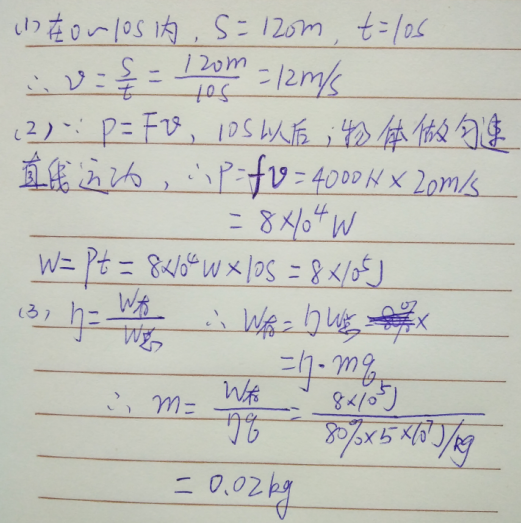 (1) 在0~10s内, S=120m, t=10s
∴ v=S/t=120m/10s=12m/s
(2) ∵ P=Fv, 10s以后, 物体做匀速
直线运动, ∴P=fv=4000N×20m/s
=8×10⁴W
W=Pt=8×10⁴W×10s=8×10⁵J
(3) η=W有/W总 ∴ W有=ηW总
=η·mq
∴ m=W有/ηq=8×10⁵J/80%×5×10⁷J/kg
=0.02kg